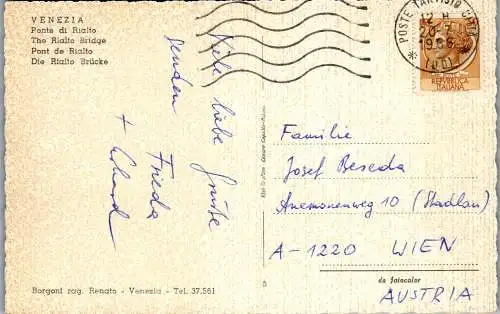 VENEZIA
Ponte di Rialto
The Rialto Bridge
Pont de Rialto
Die Rialto Brücke
Viele liebe Grüße
senden
Frieda
+ Erhard
POSTE TARVISIO
12 H
20-7
1966
(UD)
REPVBBLICA
ITALIANA
Familie
Josef Beseda
Anemonenweg 10 (Stadlau)
A-1220 WIEN
da fotocolor
AUSTRIA
Borgoni rag. Renato - Venezia - Tel. 37.561